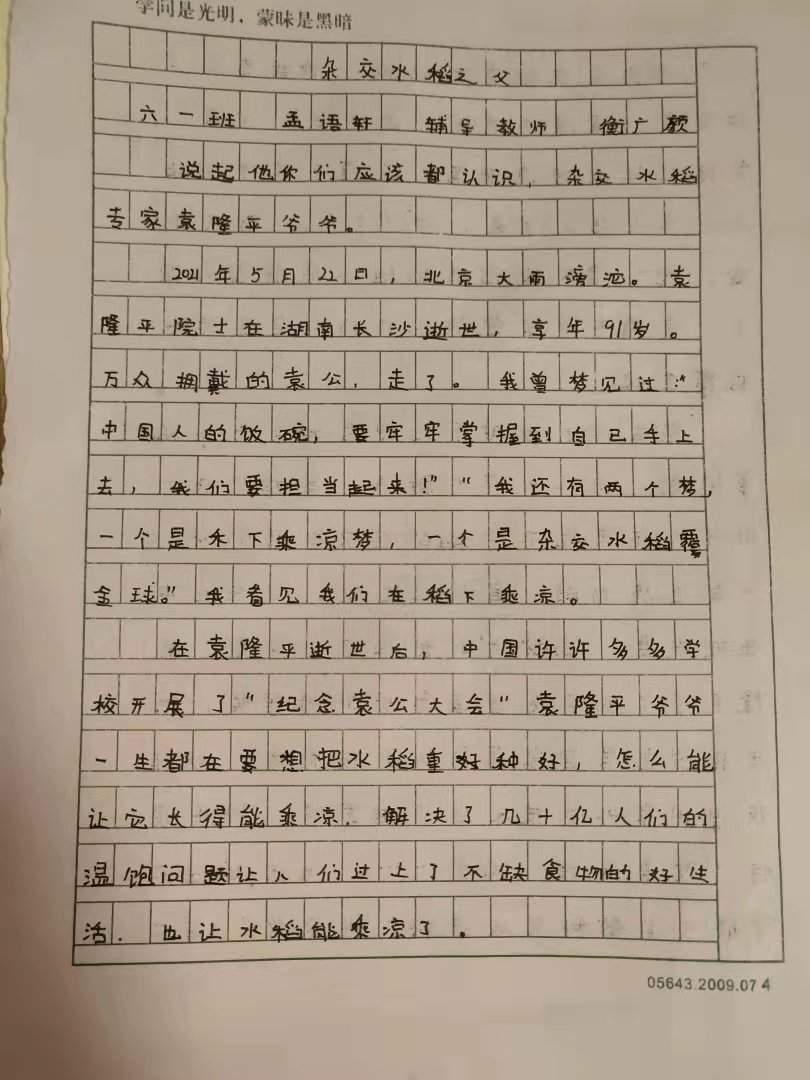 学问是光明，蒙昧是黑暗
杂交水稻之父
六一班 孟语轩 辅导教师 衡广颜
说起他你们应该都认识，杂交水稻
专家袁隆平爷爷。
2021年5月22日，北京大雨滂沱。袁
隆平院士在湖南长沙逝世，享年91岁。
万众拥戴的袁公，走了。我曾梦见过："
中国人的饭碗，要牢牢掌握到自己手上
去，我们要担当起来！""我还有两个梦，
一个是禾下乘凉梦，一个是杂交水稻覆
全球。"我看见我们在稻下乘凉。
在袁隆平逝世后，中国许许多多学
校开展了"纪念袁公大会"袁隆平爷爷
一生都在要想把水稻重好种好，怎么能
让它长得能乘凉．解决了几十亿人们的
温饱问题让人们过上了不缺食物的好生
活．也让水稻能乘凉了。
05643.2009.07 4